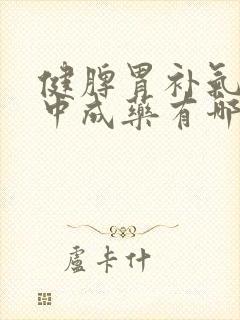 健脾胃补氣
中成藥有哪
盧卡什